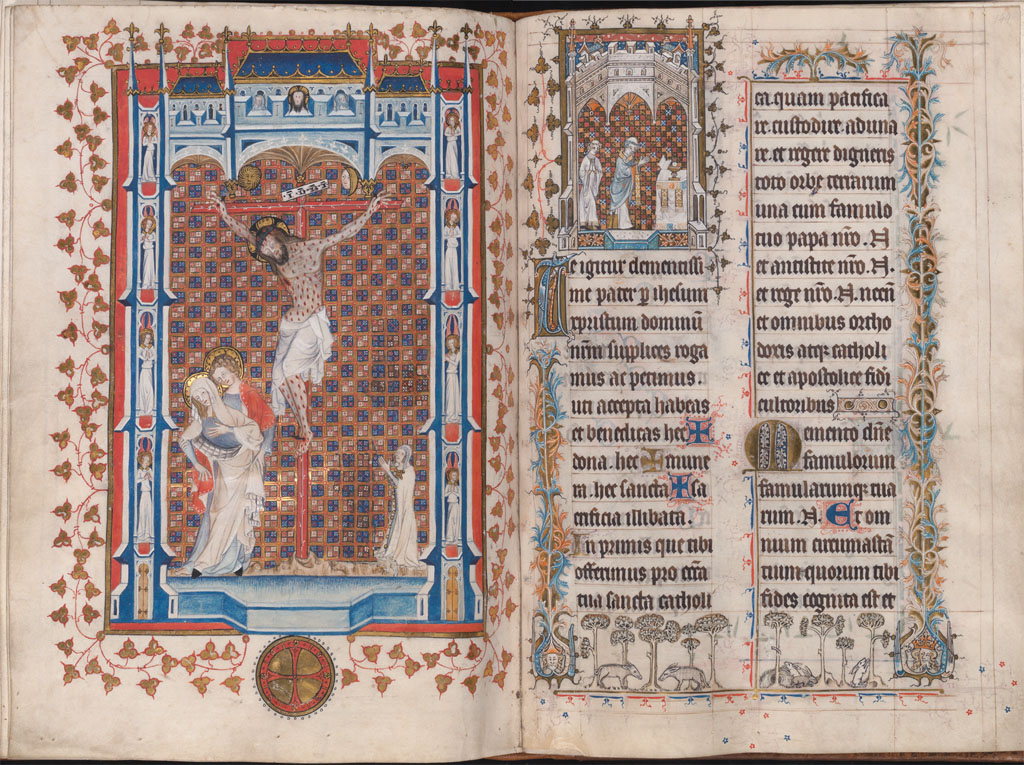 .I.N.R.I
Te igitur clementissi
me pater ꝑ ihesum
xpistum dominū
nr̄m supplices roga
mus ac petimus.
uti accepta habeas
et benedicas hec ✠
dona. hec ✠ mune
ra. hec sancta ✠ sa
crificia illibata.
In primis que tibi
offerimus pro ecc̄a
tua sancta catholi
ca. quam pacifica
re. custodire. aduna
re. et regere digneris
toto orbe terrarum
una cum famulo
tuo papa nr̄o. N
et antistite nr̄o. N.
et rege nr̄o. N. necn̄
et omnibus ortho
doxis atqꝫ catholi
ce et apostolice fidī
cultoribus
Memento dn̄e
famulorum
famularumqꝫ tua
rum. N. Et om
nium circumastā
tium. quorum tibi
fides cognita est et